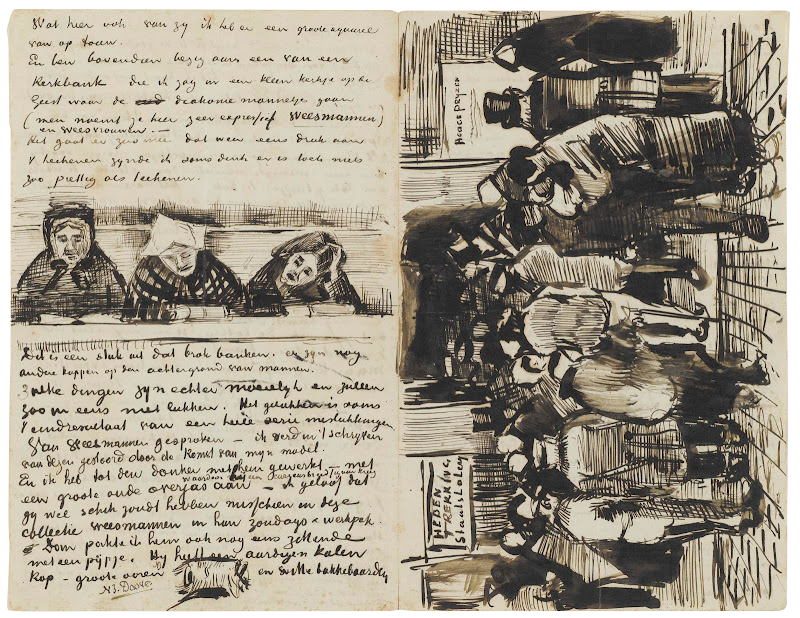 Wat hier ook van zy ik heb er een groote aquarel
van op touw.
En ben bovendien bezig aan een van een
kerkbank die ik zag in een klein kerkje op de
Geest waar de diakonie mannetjes gaan
(men noemt ze hier zeer expressief Weesmannen)
en weesvrouwen. —
Het gaat er zoo mee dat weer eens druk aan
't teekenen zynde ik soms denk er is toch niets
zoo prettig als teekenen.
Dit is een stuk uit dat brok banken. er zyn nog
andere koppen op den achtergrond van mannen.
Zulke dingen zyn echter moeielyk en zullen
zoo in eens niet lukken. Het gelukken is soms
't eindresultaat van een heele serie mislukkingen
Van Weesmannen gesproken – ik werd in 't schryven
van dezen gestoord door de komst van myn model.
En ik heb tot den donker met hem gewerkt – met
waardoor hy een curieus breed figuur kreeg
een groote oude overjas aan – ik geloof dat
gy wel schik zoudt hebben misschien in deze
collectie weesmannen in hun zondags & werkpak.
Dan pakte ik hem ook nog eens zittende
met een pypje. Hy heeft een aardigen kalen
kop – groote ooren en witte bakkebaarden
HEDEN
TREKKING
Staatsloterij